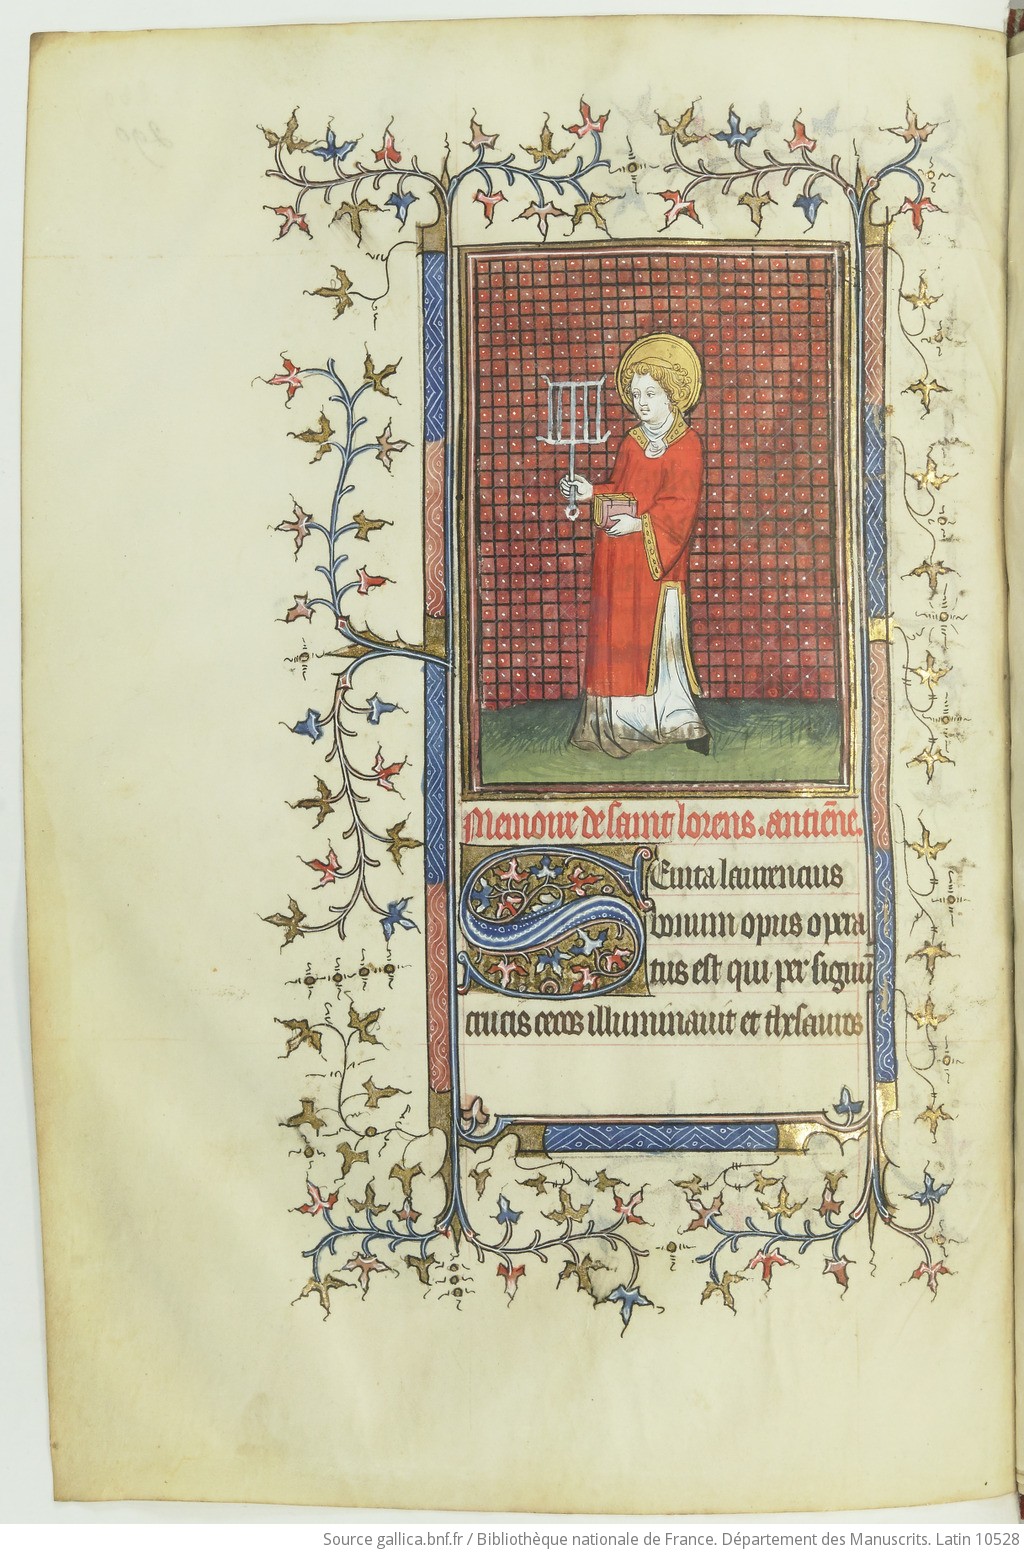 Memoire de saint lorens. antiēne.
Seuita laurencius
bonum opus opera
tus est qui per signū
crucis cecos illuminauit et thesauros
Source gallica.bnf.fr / Bibliothèque nationale de France. Département des Manuscrits. Latin 10528